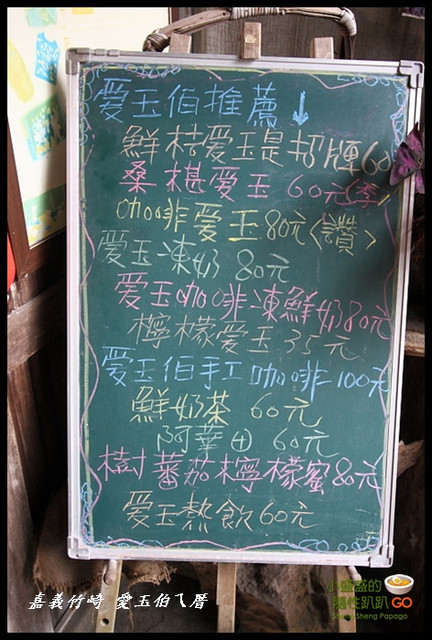 愛玉伯推薦↓
鮮桔愛玉是招牌60
桑椹愛玉 60元(季)
咖啡愛玉80元<讚>
愛玉凍奶 80元
愛玉咖啡凍鮮奶80元
檸檬愛玉35元
愛玉伯手工咖啡100元
鮮奶茶 60元
阿華田 60元
樹蕃茄檸檬蜜80元
愛玉熱飲60元
嘉義竹崎 愛玉伯ㄟ厝
小盛盛的
GO
Papago